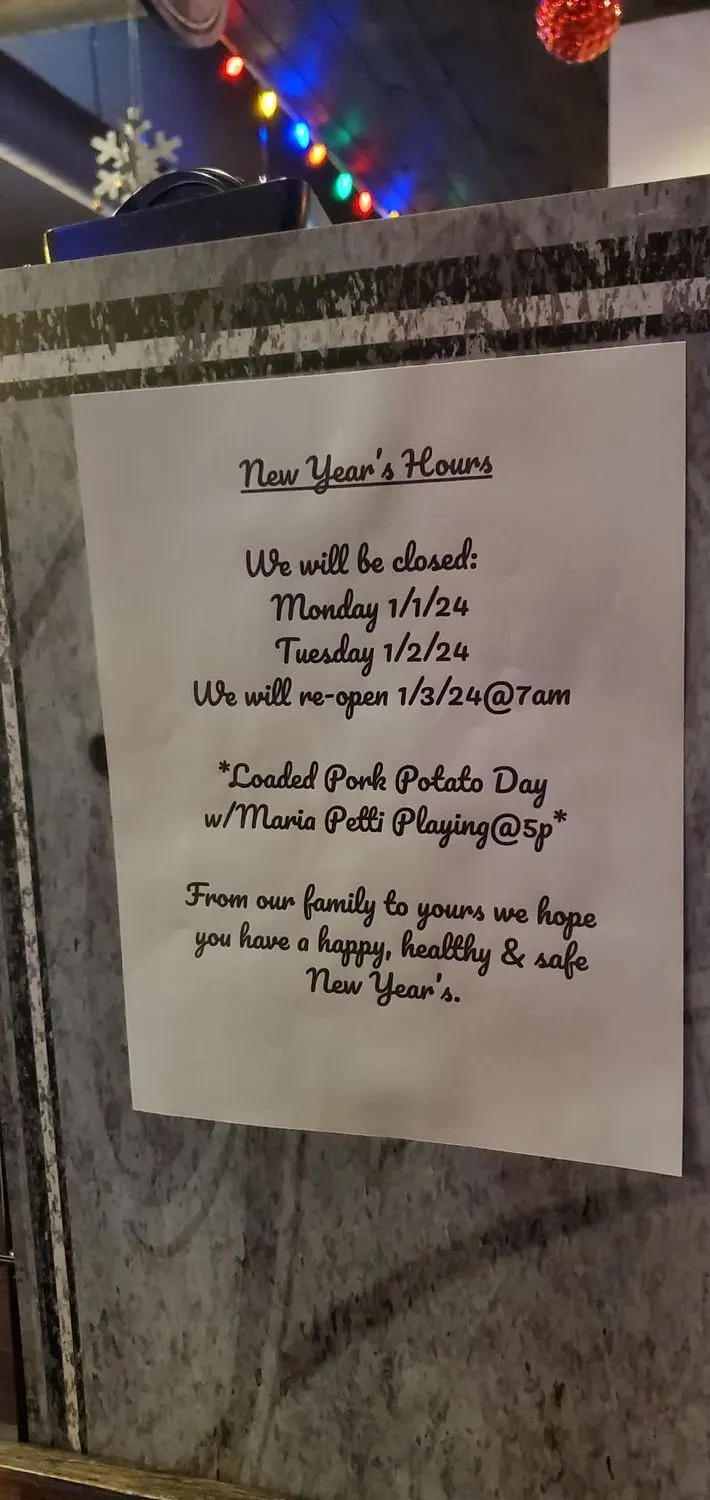 New Year's Hours
We will be closed:
Monday 1/1/24
Tuesday 1/2/24
We will re-open 1/3/24@7am
*Loaded Pork Potato Day
w/Maria Petti Playing@5p*
From our family to yours we hope
you have a happy, healthy & safe
New Year's.